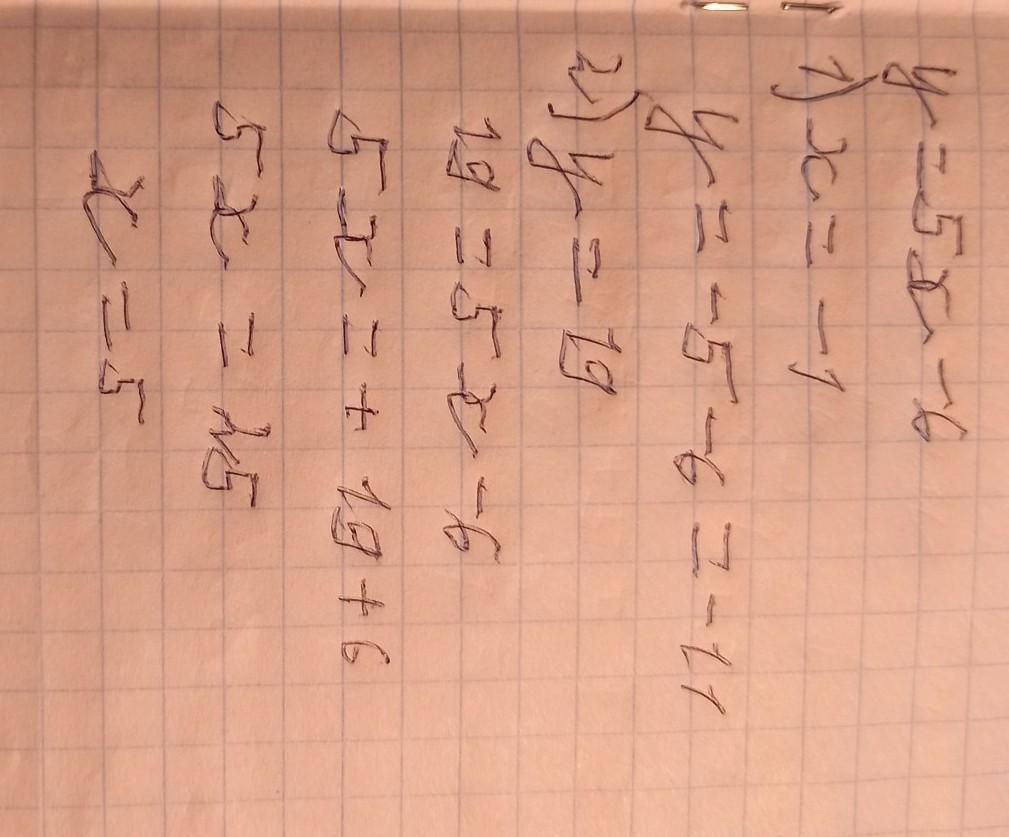 y = 5x - 6
1) x = -1
y = -5 - 6 = -11
2) y = 19
19 = 5x - 6
5x = + 19 + 6
5x = 25
x = 5